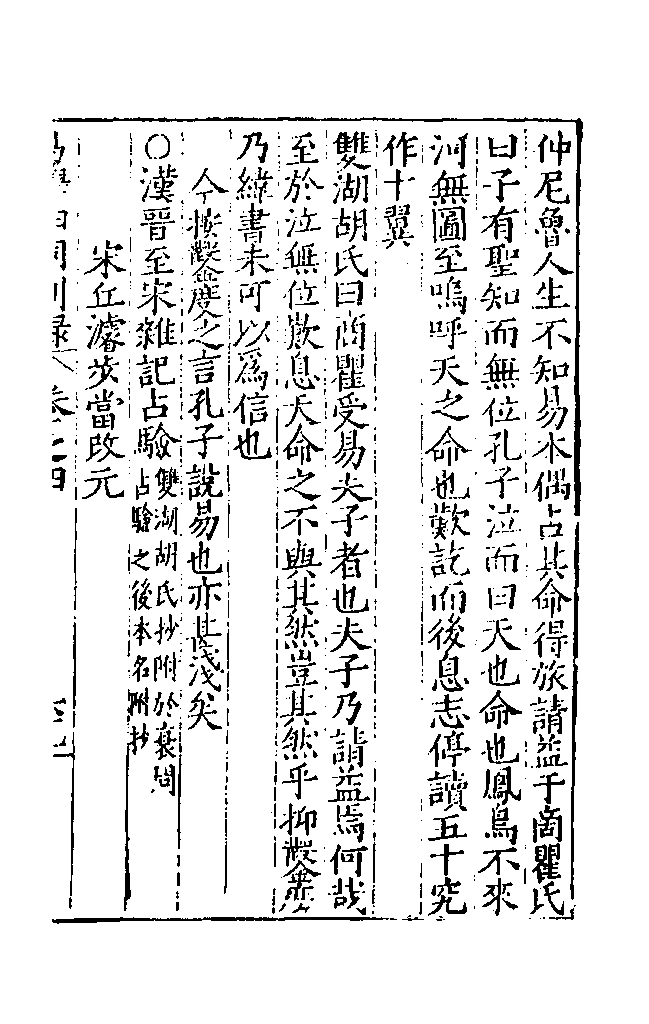 仲尼魯人生不知易本偶占其命得旅請益于商瞿氏
曰子有聖知而無位孔子泣而曰天也命也鳳鳥不來
河無圖至嗚呼天之命也歎訖而後息志停讀五十究
作十翼
雙湖胡氏曰商瞿受易夫子者也夫子乃請益焉何哉
至於泣無位歎息天命之不與其然豈其然乎抑
乃緯書未可以爲信也
今按之言孔子說易也亦甚淺矣
○漢晉至宋雜記占驗雙湖胡氏抄附於袁問
占驗之後本名附抄
宋丘濬茨當改元